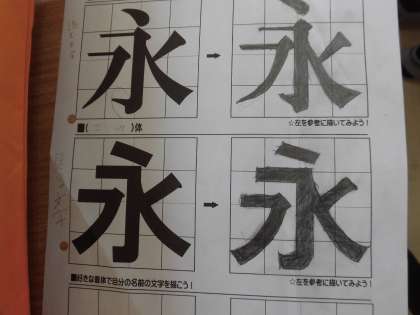 永 → 永
■( )体 ☆左を参考に描いてみよう!
永 → 永
■好きな書体で自分の名前の文字を描こう! ☆左を参考に描いてみよう!